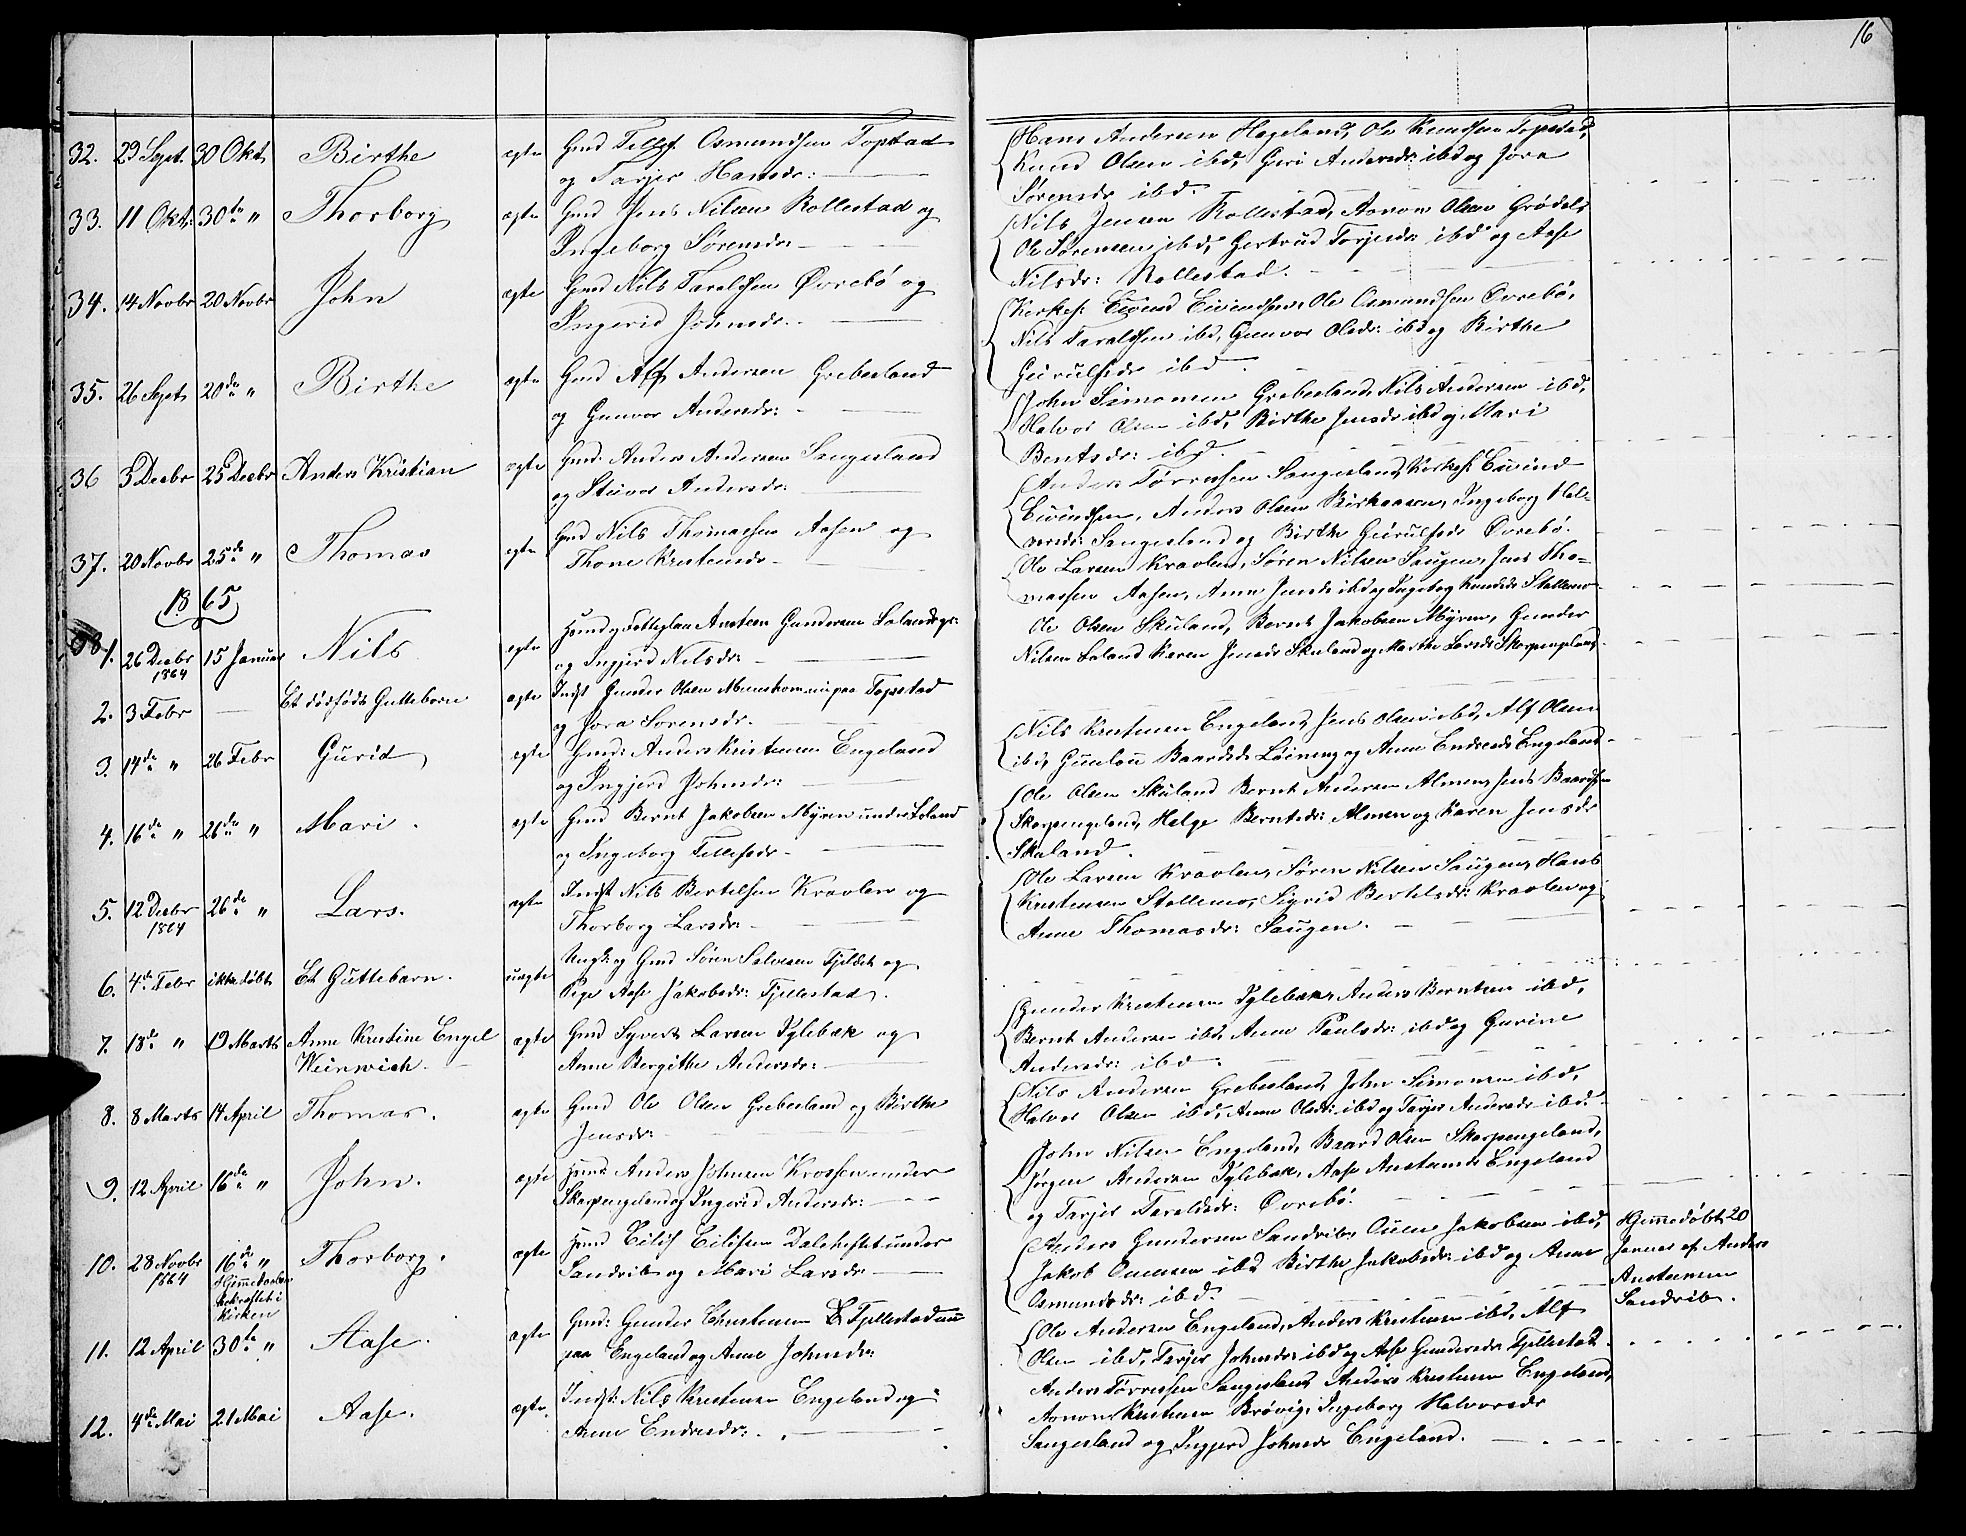 16
32. 29 Sept. 30 Okt Birthe ægte Gmd Tellef Osmundsen Topstad
og Tarjer Hansdr:
Hans Andersen Hageland, Ole Knudsen Topstad,
Knud Olsen ibd, Guri Andersdr: ibd og Jora
Sørensdr ibd.
33. 11 Okt: 30te " Thorborg ægte Gmd Jens Nilsen Rollestad og
Ingeborg Sørensdr
Nils Jensen Rollestad, Aanon Olsen Grødels
Ole Sørensen ibd, Gertrud Torjusdr ibd og Aase
Nilsdr: Rollestad.
34. 14 Novbr 20 Novbr John ægte Gmd Nils Taraldsen Øvrebö og
Ingerid Johnsdr.
Kirkes: Eivend Eivendsen, Ole Osmundsen Øvrebö,
Nils Taraldsen ibd, Gunvor Olsdr: ibd og Birthe
Geirulfsdr ibd.
35. 26 Sept 20de " Birthe ægte Gmd Alf Andersen Grebesland
og Gunvor Andersdr:
John Simonsen Grebesland, Nils Andersen ibd,
Halvor Olsen ibd, Birthe Jensdr ibd og Mari
Bentsdr: ibd.
36 3 Decbr 25 Decbr Anders Kristian ægte Gmd: Anders Andersen Sangesland
og Stuvor Andersdr:
Anders Tørresen Sangesland, Kirkes: Eivind
Eivindsen, Anders Olsen Birkaasen, Ingeborg Hal-
vorsdr: Sangesland og Birthe Geirulfsdr Øvrebö.
37. 20 Novbr 25de " Thomas ægte Gmd Nils Thomassen Aasen og
Thone Kristensdr
Ole Larsen Kravlen, Søren Nilsen Saugen, Jens Tho-
massen Aasen, Anne Jensdr ibd og Ingebog Knudsdr Stallemo
1865
1. 26 Decbr 15 Januar Nils ægte Gunder Austeen Gundersen Loland
1864 og Ingjerd Nilsdr:
Ole Olsen Skuland, Bernt Jakobsen Myren, Gunder
Nilsen Loland Karen Jensdr Skuland og Marthe Larsdr Skarpengland.
2. 3 Febr Et dödfödt Guttebarn ægte Indst Gunder Olsen paa Topstad
og Jora Sørensdr.
3. 14de " 26 Febr Gurid ægte Gmd: Anders Kristensen Engeland
og Ingjerd Johnsdr:
Nils Kristensen Engeland, Jens Olsen ibd, Alf Olsen
ibd, Gunlou Baardsdr Löining og Anne Endresdr Engeland
4. 16de " 26de " Mari. ægte Gmd Bernt Jakobsen Myren under Loland
og Ingeborg Tellefsdr
Ole Olsen Skuland Bernt Andersen Almen, Jens Baardsen
Skarpengeland, Helge Berntsdr: Almen og Karen Jensdr
Skuland.
5. 12 Decbr 26de " Lars. ægte Indst Nils Bertelsen Kravlen og
1864 Thorborg Larsdr:
Ole Larsen Kravlen, Søren Nilsen Saugen, Hans
Kristensen Stallemo, Sigrid Bertelsdr: Kravlen og
Anne Thomasdr: Saugen.
6. 4de Febr ikke döbt Et Guttebarn. uægte Ungk: og Gmd Søren Salvesen Fjeldet og
Pige Aase Jakobsdr: Fjellestad.
7. 18de " 19 Marts Anne Kristine Engel ægte Gmd Syvert Larsen Iglebæk og
Weinwich. Anne Bergithe Andersdr:
Gunder Kristensen Iglebæk, Anders Berntsen ibd,
Bernt Andersen ibd, Anne Paulsdr: ibd og Gurine
Andersdr: ibd.
8. 8 Marts 14 April Thomas. ægte Gmd Ole Olsen Grebesland og Birthe
Jensdr:
Nils Andersen Grebesland, John Simonsen ibd,
Halvor Olsen ibd, Anne Olsdr: ibd og Tarjer Andersdr ibd.
9. 12 April 16de " John. ægte Hmd Anders Johnsen Krossen under
Skarpengeland og Ingerid Andersdr:
John Nilsen Engeland, Baard Olsen Skarpengeland,
Jørgen Andersen Iglebæk, Aase Austensdr Engeland
og Tarjer Taraldsdr: Øvrebö.
10. 28 Novbr 16de " Thorborg. ægte Hmd Eilif Eilifsen Daleheftet under
1864 Hjemmedaaben Sandrib og Mari Larsdr
bekræftet i
Kirken
Anders Gundersen Sandrib, Ouen Jakobsen ibd,
Jakob Ouensen ibd Birthe Jakobsdr: ibd og Anne
Osmundsdr: ibd.
Hjemmedöbt 20
Januar af Anders
Austensen
Sandrib.
11. 12 April 30te " Aase. ægte Gmd: Gunder Christensen Fjellestad
paa Engeland og Anne Johnsdr:
Ole Andersen Engeland, Anders Kristensen ibd, Alf
Olsen ibd, Tarjer Johnsdr: ibd og Aase Gundersdr Fjellestad.
12. 4de Mai 21 Mai Aase. ægte. Indst: Nils Kristensen Engeland og
Anne Endresdr:
Anders Tørresen Sangesland, Anders Kristensen Engeland,
Aanon Kristensen Brøvig, Ingeborg Halvorsdr
Sangesland og Ingjerd Johnsdr Engeland.